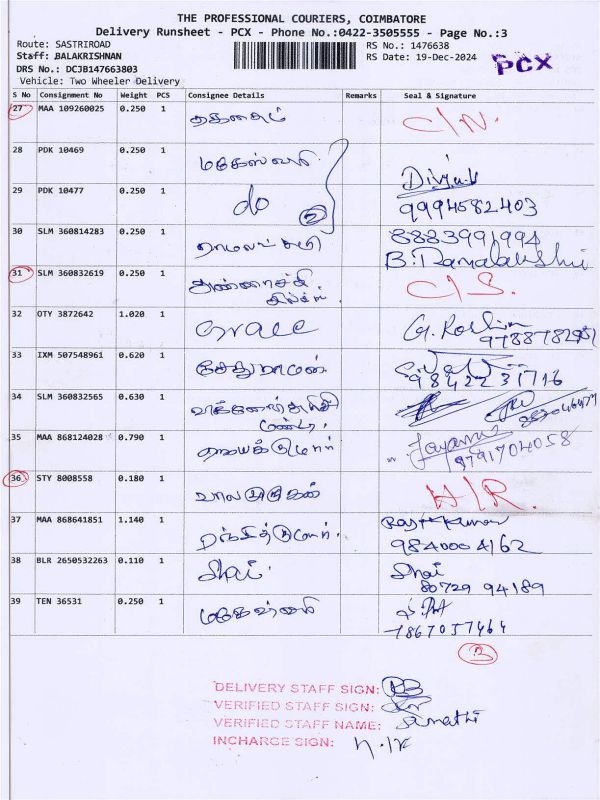 THE PROFESSIONAL COURIERS, COIMBATORE
Delivery Runsheet - PCX - Phone No.:0422-3505555 - Page No.:3
Route: SASTRIROAD
RS No.: 1476638
Staff: BALAKRISHNAN
RS Date: 19-Dec-2024
PCX
DRS No.: DCJB147663803
Vehicle: Two Wheeler Delivery
S No Consignment No Weight PCS Consignee Details Remarks Seal & Signature
27 MAA 109260025 0.250 1 C/N.
28 PDK 10469 0.250 1 மகேஸ்வரி
29 PDK 10477 0.250 1 do 2 Divya
9994582403
30 SLM 360814283 0.250 1 ராமலட்சுமி 8883991994
B. Ramalakshmi
31 SLM 360832619 0.250 1 C/S.
32 OTY 3872642 1.020 1 Grace G.
33 IXM 507548961 0.620 1 சேதுராமன்
9842231716
34 SLM 360832565 0.630 1
35 MAA 868124028 0.790 1 ஜெயக்குமார் Jayam
9791704058
36 STY 8008558 0.180 1 பாலமுருகன் H/R.
37 MAA 868641851 1.140 1 ரஞ்சித்குமார். Rajkumar
9840004162
38 BLR 2650532263 0.110 1 Shai Shai
80729 94189
39 TEN 36531 0.250 1
7867057464
13
DELIVERY STAFF SIGN:
VERIFIED STAFF SIGN:
VERIFIED STAFF NAME: Sumathi
INCHARGE SIGN: